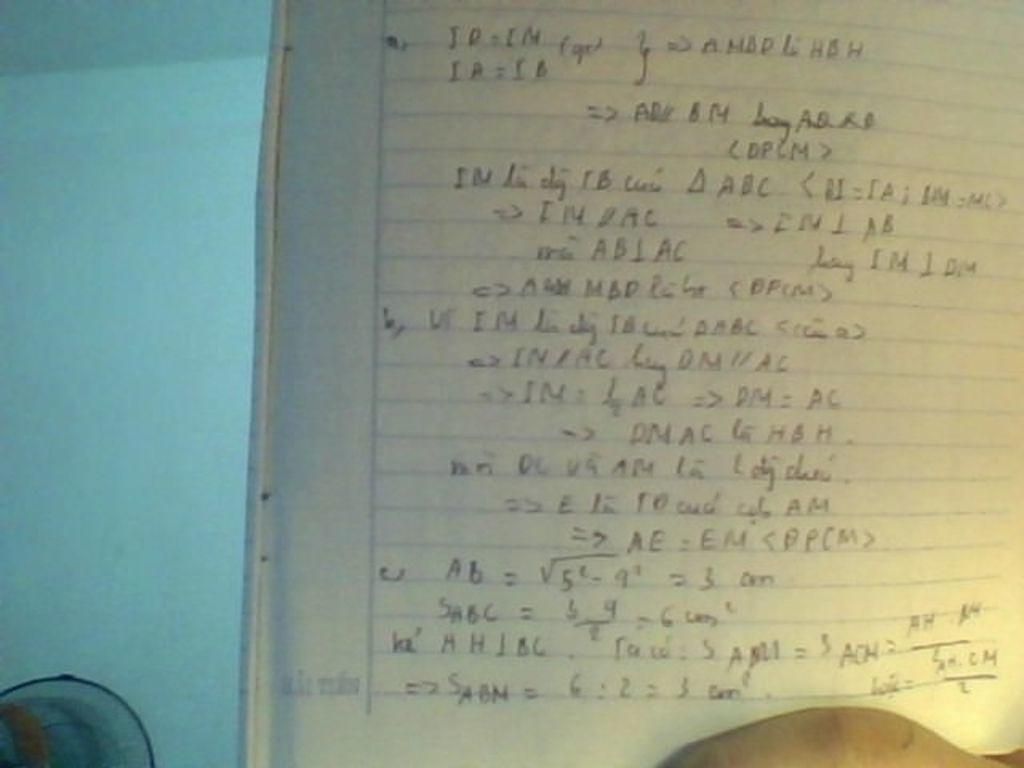 a, ID = IM (gt) } => AMBD là HBH
IA = IB
=> AD // BM hay
<DPCM>
IM là đg TB của Δ ABC < BI = IA ; BM = MC>
=> IM // AC => IM ⊥ AB
mà AB ⊥ AC hay IM ⊥ DM
=> MBD là <DPCM>
b, Vì IM là đg TB của ΔABC <câu a>
=> IM // AC hay DM // AC
=> IM = 1/2 AC => DM = AC
=> DMAC là HBH.
mà DC và AM là đg chéo.
=> E là TĐ của AM
=> AE = EM <DPCM>
c, AB = √5² - 4² = 3 cm
SABC = 3.4/2 = 6 cm²
kẻ AH ⊥ BC. Ta có: SABM = SACM = AH.
AH.CM/2
=> SABM = 6 : 2 = 3 cm².
HẢI TIẾN